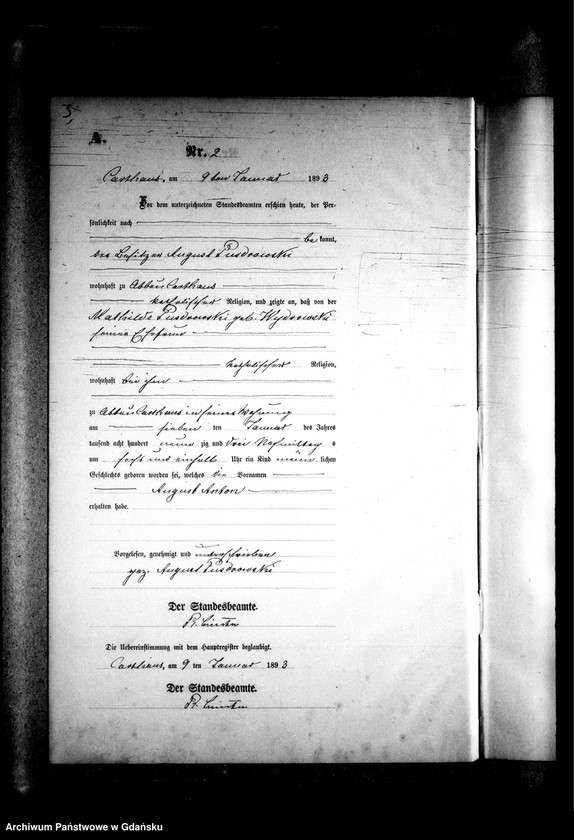 3,
A.
Nr. 2
Carthaus, am 9ten Januar 1893
Vor dem unterzeichneten Standesbeamten erschien heute, der Per-
sönlichkeit nach
be kannt,
der Besitzer August Pusdrowski
wohnhaft zu Abbau Carthaus
katholischer Religion, und zeigte an, daß von der
Mathilde Pusdrowski geb. Wydrowski
seiner Ehefrau
katholischer Religion,
wohnhaft bei ihm
zu Abbau Carthaus in seiner Wohnung
am sieben ten Januar des Jahres
tausend acht hundert neun zig und drei Nachmittag s
um sechs und einhalb Uhr ein Kind männ lichen
Geschlechts geboren worden sei, welches die Vornamen
August Anton
erhalten habe.
Vorgelesen, genehmigt und unterschrieben
gez. August Pusdrowski
Der Standesbeamte.
Die Uebereinstimmung mit dem Hauptregister beglaubigt.
Carthaus, am 9 ten Januar 1893
Der Standesbeamte.
Archiwum Państwowe w Gdańsku